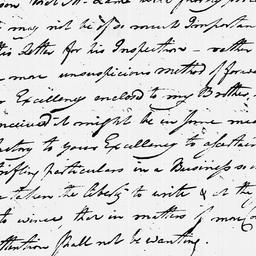 son that Mr.
it may not be of so much Importance
this Letter for his Inspection – rather
more unsuspicious method of forw
Excellency enclosed to my Brother
conceived it might be in some mea
factory to your Excellency to ascertain
trifling particulars in a Business
taken the liberty to write & at the
to that in matters of more
attention shall not be wanting.